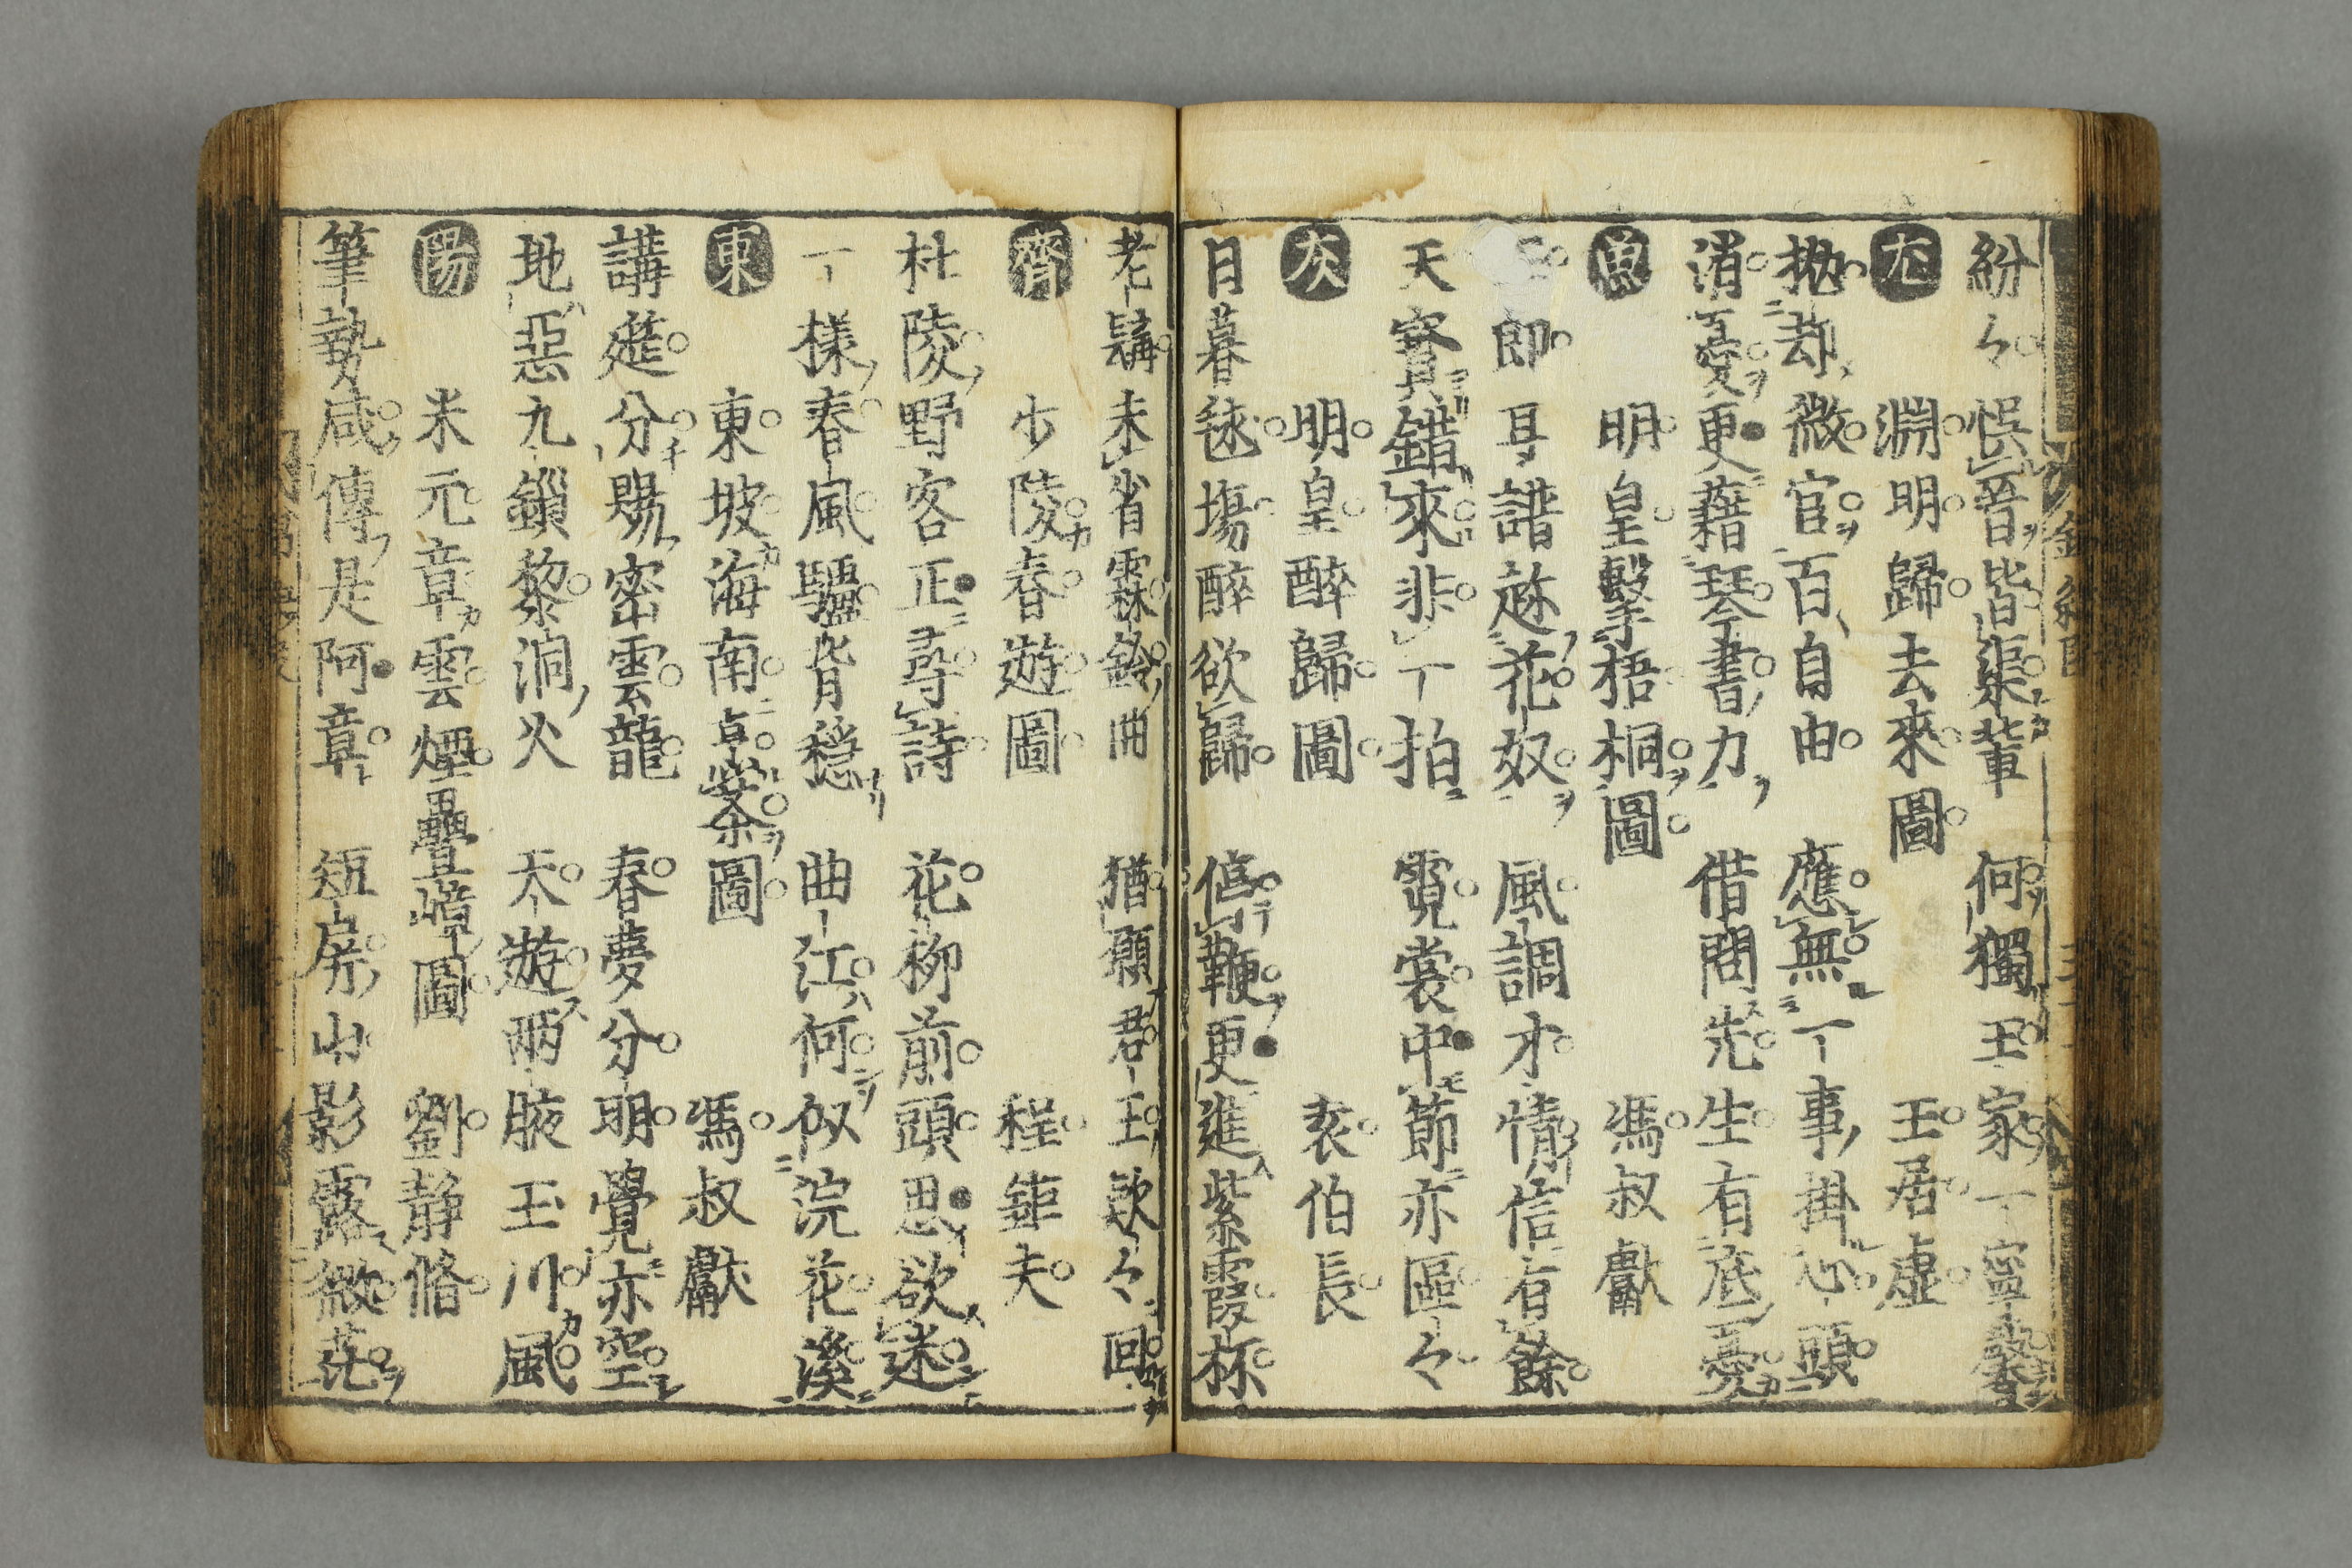 紛々悞晉皆渠輩　何獨王家一寧馨
尤　淵明歸去來圖　王居虛
抛却微官百自由　應無一事掛心頭
消憂更藉琴書力　借問先生有底憂
魚　明皇擊梧桐圖　馮叔獻
三郎耳譜趂花奴　風調才情信有餘
天寶錯來非一拍　霓裳中節亦區々
灰　明皇醉歸圖　袁伯長
日暮毬場醉欲歸　停鞭更進紫霞杯
老韝未省霖鈴曲　猶顧君王欵々回
齊　少陵春遊圖　程鉅夫
杜陵野客正尋詩　花柳前頭思欲迷
一樣春風驢背穩　曲江何似浣花溪
東　東坡海南烹茶圖　馮叔獻
講莚分賜密雲龍　春夢分明覺亦空
地惡九鎻黎洞火　天遊兩腋玉川風
陽　米元章雲煙疊嶂圖　劉靜脩
筆勢咸傳是阿章　短屏山影露微茫